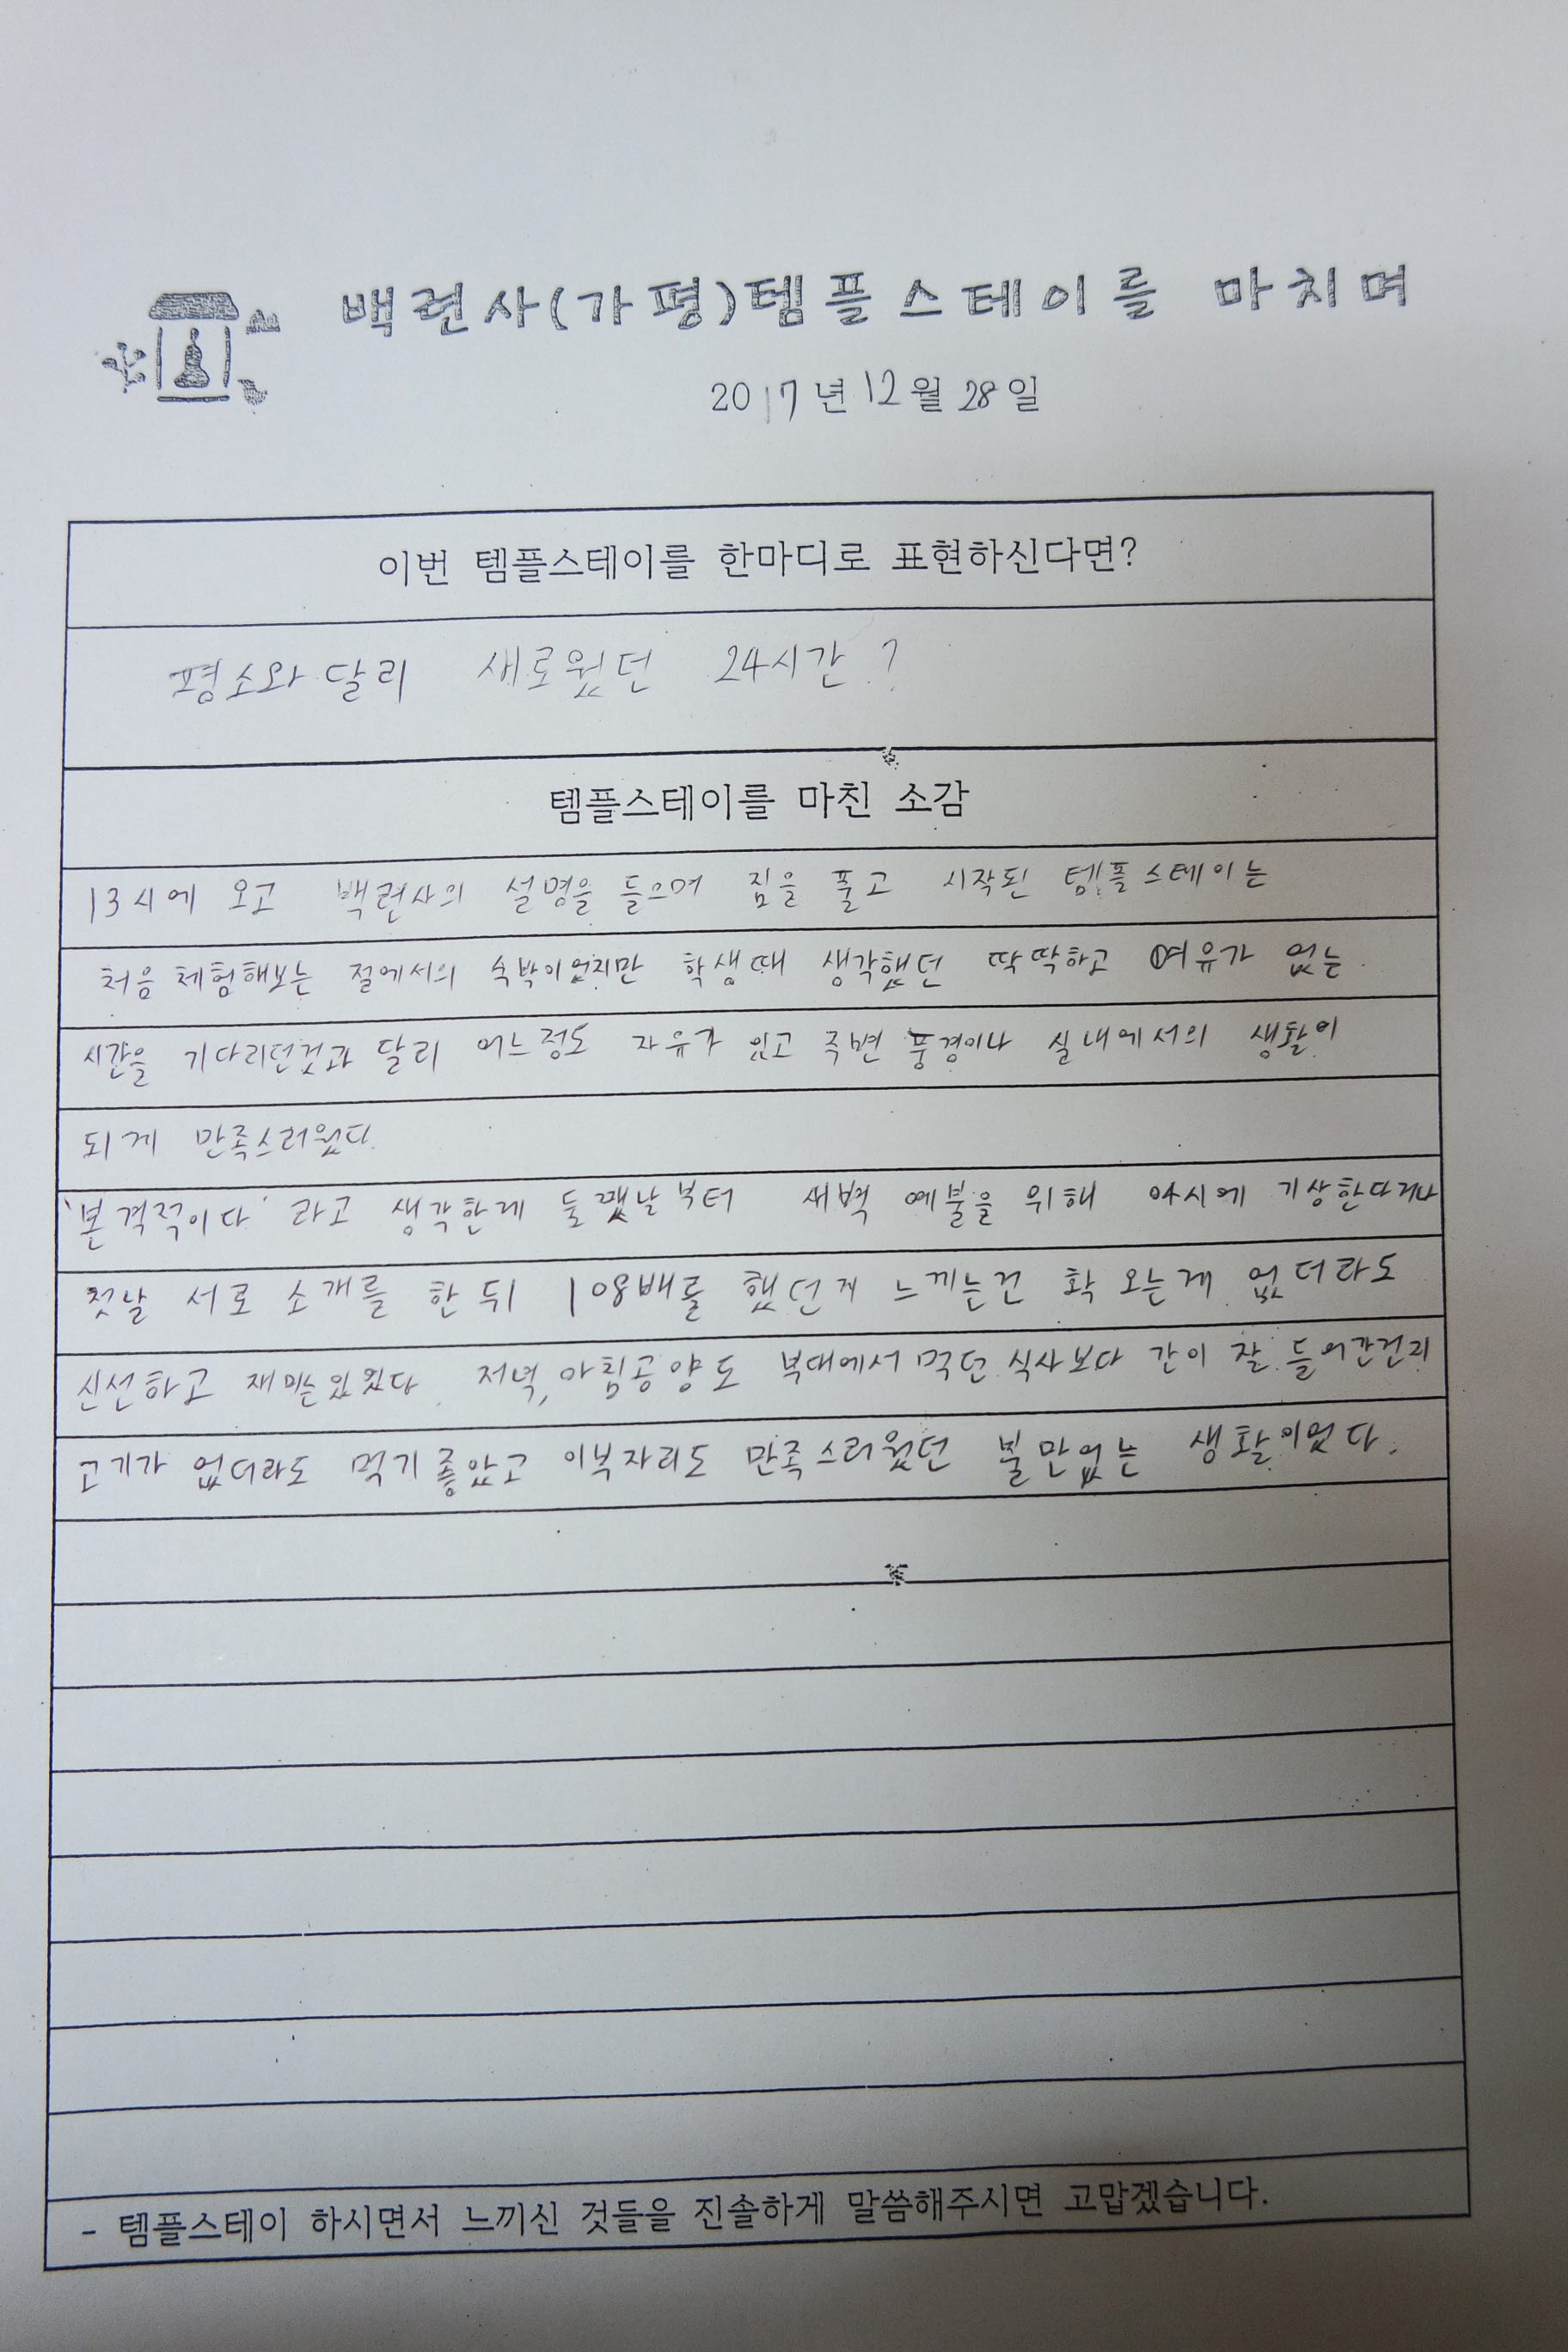 백련사(가평)템플스테이를 마치며
2017년 12월 28일
이번 템플스테이를 한마디로 표현하신다면?
평소와 달리 새로웠던 24시간?
템플스테이를 마친 소감
13시에 오고 백련사의 설명을 들으며 짐을 풀고 시작된 템플스테이는
처음 체험해보는 절에서의 숙박이었지만 학생때 생각했던 딱딱하고 여유가 없는
시간을 기다리던것과 달리 어느정도 자유가 있고 주변 풍경이나 실내에서의 생활이
되게 만족스러웠다.
'본격적이다' 라고 생각한게 둘쨋날부터 새벽 예불을 위해 04시에 기상한다거나
첫날 서로 소개를 한 뒤 108배를 했던게 느끼는건 확 오는게 없더라도
신선하고 재미는있었다. 저녁,아침공양도 부대에서 먹던 식사보다 간이 잘 들어간건지
고기가 없더라도 먹기좋았고 이부자리도 만족스러웠던 불만없는 생활이었다.
- 템플스테이 하시면서 느끼신 것들을 진솔하게 말씀해주시면 고맙겠습니다.